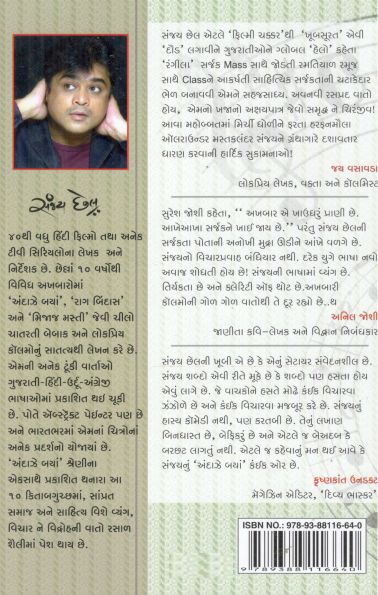 સંજય છેલ
૪૦થી વધુ હિંદી ફિલ્મો તથા અનેક
ટીવી સિરિયલોના લેખક અને
નિર્દેશક છે. છેલ્લાં ૧૦ વર્ષોથી
વિવિધ અખબારોમાં
‘અંદાઝે બયાં’, ‘રાગ બિંદાસ’
અને ‘મિજાજ મસ્તી’ જેવી ચીલો
ચાતરતી બેબાક અને લોકપ્રિય
કૉલમોનું સાતત્યથી લેખન કરે છે.
એમની અનેક ટૂંકી વાર્તાઓ
ગુજરાતી-હિંદી-ઉર્દૂ-અંગ્રેજી
ભાષાઓમાં પ્રકાશિત થઇ ચૂકી
છે. પોતે ઍબ્સ્ટ્રેક્ટ પેઇન્ટર પણ છે
અને ભારતભરમાં એમનાં ચિત્રોનાં
અનેક પ્રદર્શનો યોજાયાં છે.
‘અંદાઝે બયાં’ શ્રેણીના
એકસાથે પ્રકાશિત થનારા આ
૧૦ કિતાબગુચ્છમાં, સાંપ્રત
સમાજ અને સાહિત્ય વિશે વ્યંગ,
વિચાર ને વિદ્રોહની વાતો રસાળ
શૈલીમાં પેશ થાય છે.
સંજય છેલ એટલે ‘ફિલ્મી ચક્કર’થી ‘ખૂબસૂરત’ એવી
‘દૌડ’ લગાવીને ગુજરાતીઓને ગ્લોબલ ‘હેલો’ કહેતા
‘રંગીલા’ સર્જક Mass સાથે જોડતી રમતિયાળ રમૂજ
સાથે Classને આકર્ષતી સાહિત્યિક સર્જકતાની ચટાકેદાર
ભેળ બનાવવી એમને સહજસાધ્ય. અવનવી રસપ્રદ વાતો
હોય, એમનો ખજાનો અક્ષયપાત્ર જેવો સમૃદ્ધ ને ચિરંજીવ!
આવા મહોબ્બતમાં મિર્ચી ઘોળીને ફરતા હરફનમૌલા
ઑલરાઉન્ડર મસ્તકલંદર સંજયને ગ્રંથાગારે દશાવતાર
ધારણ કરવાની હાર્દિક શુકામનાઓ!
જય વસાવડા
લોકપ્રિય લેખક, વક્તા અને કૉલમિસ્ટ
સુરેશ જોશી કહેતા, ‘‘ અખબાર એ ખાઉધરું પ્રાણી છે.
આખેઆખા સર્જકને ખાઈ જાય છે.’’ પરંતુ સંજય છેલની
સર્જકતા પોતાની અનોખી મુદ્રા ઊઠીને આંખે વળગે છે.
સંજયનો વિચારપ્રવાહ બંધિયાર નથી. દરેક યુગે ભાષા નવો
અવાજ શોધતી હોય છે! સંજયની ભાષામાં વ્યંગ છે.
તિર્યકતા છે અને ક્લેરિટી ઑફ થોટ છે.અખબારી
કૉલમોની ગોળ ગોળ વાતોથી તે દૂર રહ્યો છે..થ
અનિલ જોશી
જાણીતા કવિ-લેખક અને વિદ્વાન નિબંધકાર
સંજય છેલની ખૂબી એ છે કે એનું સેટાયર સંવેદનશીલ છે.
સંજય શબ્દો એવી રીતે મૂકે છે કે શબ્દો પણ હસતા હોય
એવું લાગે છે. જે વાચકોને હસતે મોઢે કંઇક વિચારવા
ઝંઝોળે છે અને કંઇક વિચારવા મજબૂર કરે છે. સંજયનું
હાસ્ય કૉમેડી નથી, પણ કરતબી છે. તેનું લખાણ
બિનધાસ્ત છે, બેફિકરું છે અને એટલે જ બેઅદબ કે
બરછટ લાગતું નથી. એટલે જ કહેવાનું મન થઈ આવે કે
સંજયનું ‘અંદાઝે બયાં’ કંઇક ઓર છે.
કૃષ્ણકાંત ઉનડકટ
મેગેઝિન એડિટર, ‘દિવ્ય ભાસ્કર’
ISBN NO.: 978-93-88116-64-0
9 789388 116640